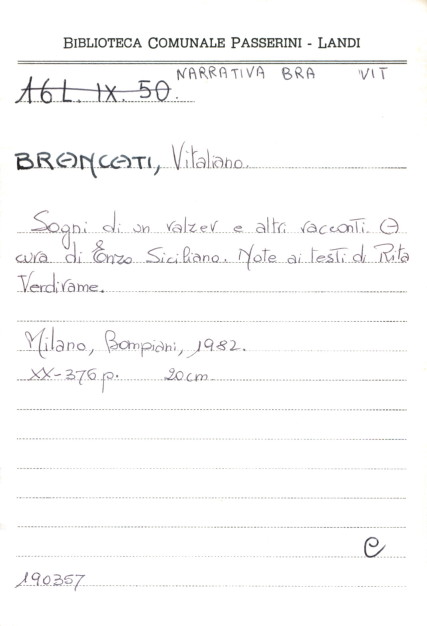 BIBLIOTECA COMUNALE PASSERINI - LANDI
NARRATIVA BRA VIT
16 L. IX. 50.
BRANCATI, Vitaliano.
Sogni di un valzer e altri racconti. A
cura di Enzo Siciliano. Note ai testi di Rita
Verdirame.
Milano, Bompiani, 1982.
XX-376 p. 20 cm.
C
190357